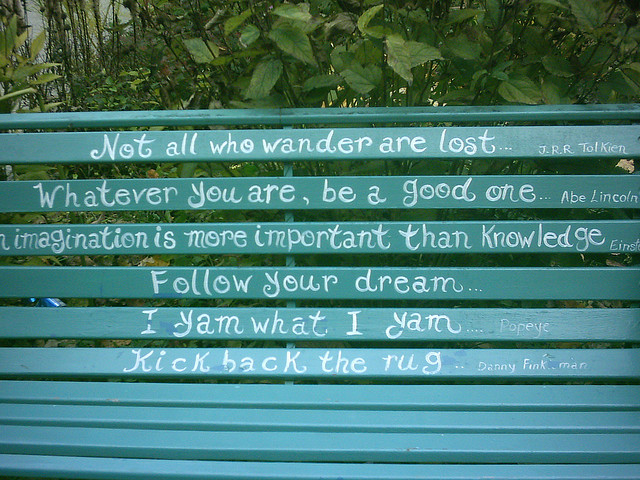 Not all who wander are lost... J.R.R. Tolkien
Whatever you are, be a good one... Abe Lincoln
imagination is more important than Knowledge
Follow your dream...
I yam what I yam.... Popeye
Kick back the rug... Danny